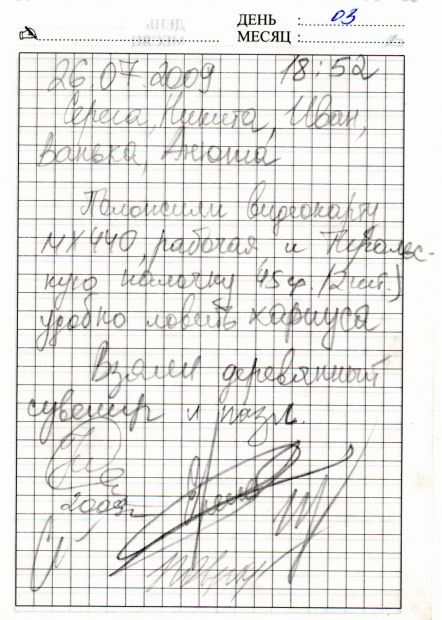 ДЕНЬ : 03
МЕСЯЦ :
26.07.2009 18:52
Серега, Никита, Иван,
Ванька, Анюта
Положили видеокарту
MX440, рабочая, и
кую палочку, 45 (2 шт.)
удобно ловить хариуса
Взяли деревянный
сувенир и пазл.
2009г